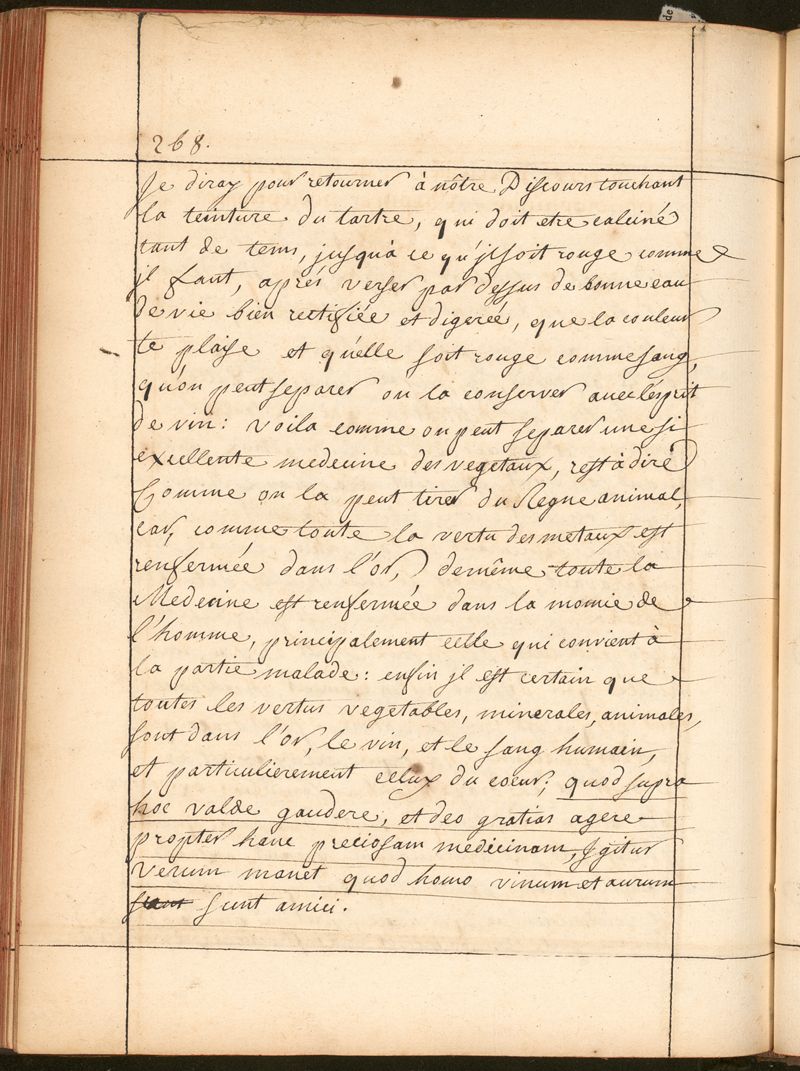 268.
Je diray pour retourner à nôtre Discours touchant
la teinture du tartre, qui doit etre calciné
tant de tems, jusqu'à ce qu'jl soit rouge comme
jl faut, aprés verser par dessus de bonne eau
de vie bien rectifiée et digerée, que la couleur
te plaise et qu'elle soit rouge comme sang,
qu'on peut separer ou la conserver avec l'esprit
de vin: voila comme on peut separer une si
excellente medecine des vegetaux, c'est à dire
Comme on la peut tirer du Regne animal,
car, comme toute la vertu des metaux est
renfermée dans l'or, demême toute la
Medecine est renfermée dans la momie de
l'homme, principalement celle qui convient à
la partie malade: enfin jl est certain que
toutes les vertus vegetables, minerales, animales,
sont dans l'or, le vin, et le sang humain,
et particulierement celux du coeur; quod supra
hoc valde gaudere, et deo gratias agere
propter hanc preciosam medicinam, Jgitur
verum manet quod homo vinum et aurum
sunt amici.